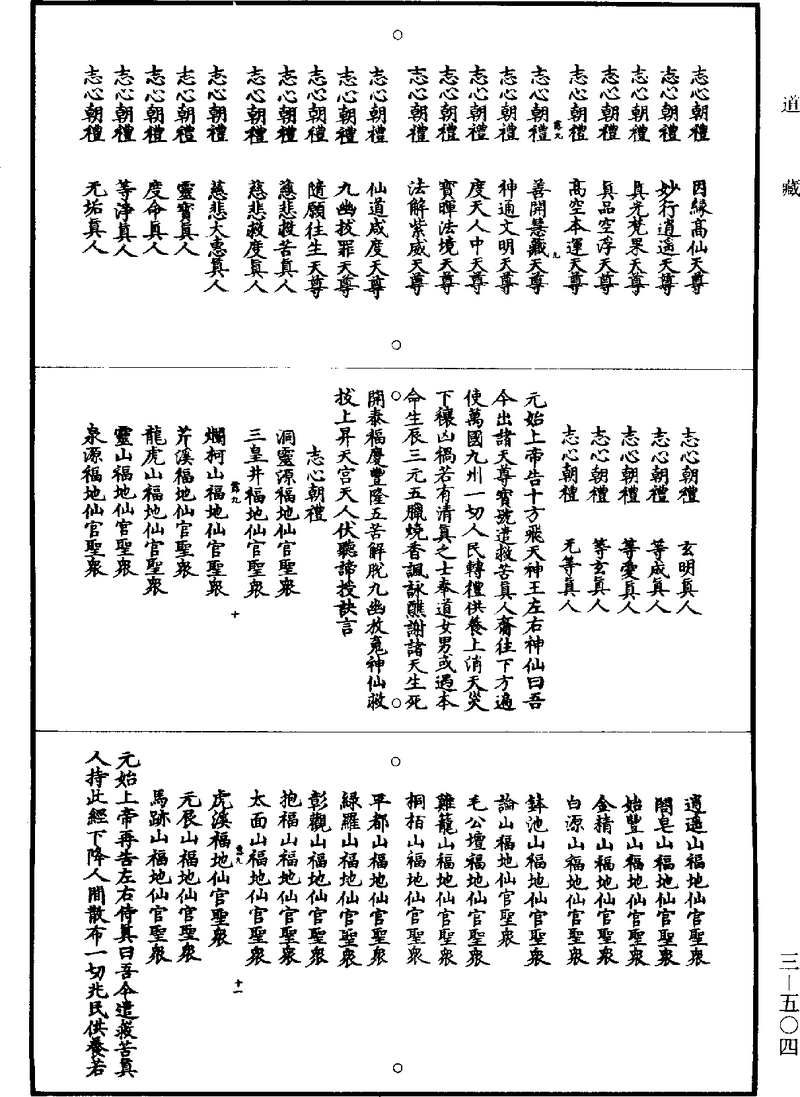 道藏
志心朝禮 因緣高仙天尊
志心朝禮 妙行逍遙天尊
志心朝禮 真光梵果天尊
志心朝禮 真品空浮天尊
志心朝禮 高空本運天尊
九
志心朝禮 善開慧藏天尊
志心朝禮 神通文明天尊
志心朝禮 度天人中天尊
志心朝禮 寶暉法境天尊
志心朝禮 法解紫威天尊
志心朝禮 仙道咸度天尊
志心朝禮 九幽拔罪天尊
志心朝禮 隨願往生天尊
志心朝禮 慈悲救苦真人
志心朝禮 慈悲救度真人
志心朝禮 慈悲大惠真人
志心朝禮 靈寶真人
志心朝禮 度命真人
志心朝禮 等淨真人
志心朝禮 无垢真人
志心朝禮 玄明真人
志心朝禮 等成真人
志心朝禮 等愛真人
志心朝禮 等玄真人
志心朝禮 无等真人
元始上帝告十方飛天神王左右神仙曰吾
今出諸天尊寶號遣救苦真人齎往下方遍
使萬國九州一切人民轉禮供養上消天災
下禳凶禍若有清真之士奉道女男或遇本
命生辰三元五臘燒香諷詠醮謝諸天生死
開泰福慶豐隆五苦解脫九幽放魂神仙救
拔上昇天宮天人伏聽諦授訣言
志心朝禮
洞靈源福地仙官聖眾
三皇井福地仙官聖眾
十
爛柯山福地仙官聖眾
芹溪福地仙官聖眾
龍虎山福地仙官聖眾
靈山福地仙官聖眾
泉源福地仙官聖眾
逍遙山福地仙官聖眾
閤皂山福地仙官聖眾
始豐山福地仙官聖眾
金精山福地仙官聖眾
白源山福地仙官聖眾
鉢池山福地仙官聖眾
論山福地仙官聖眾
毛公壇福地仙官聖眾
雞籠山福地仙官聖眾
桐栢山福地仙官聖眾
平都山福地仙官聖眾
綠羅山福地仙官聖眾
彰觀山福地仙官聖眾
抱福山福地仙官聖眾
太面山福地仙官聖眾
十一
虎溪福地仙官聖眾
元辰山福地仙官聖眾
馬跡山福地仙官聖眾
元始上帝再告左右侍真曰吾今遣救苦真
人持此經下降人間散布一切兆民供養若
三—五〇四